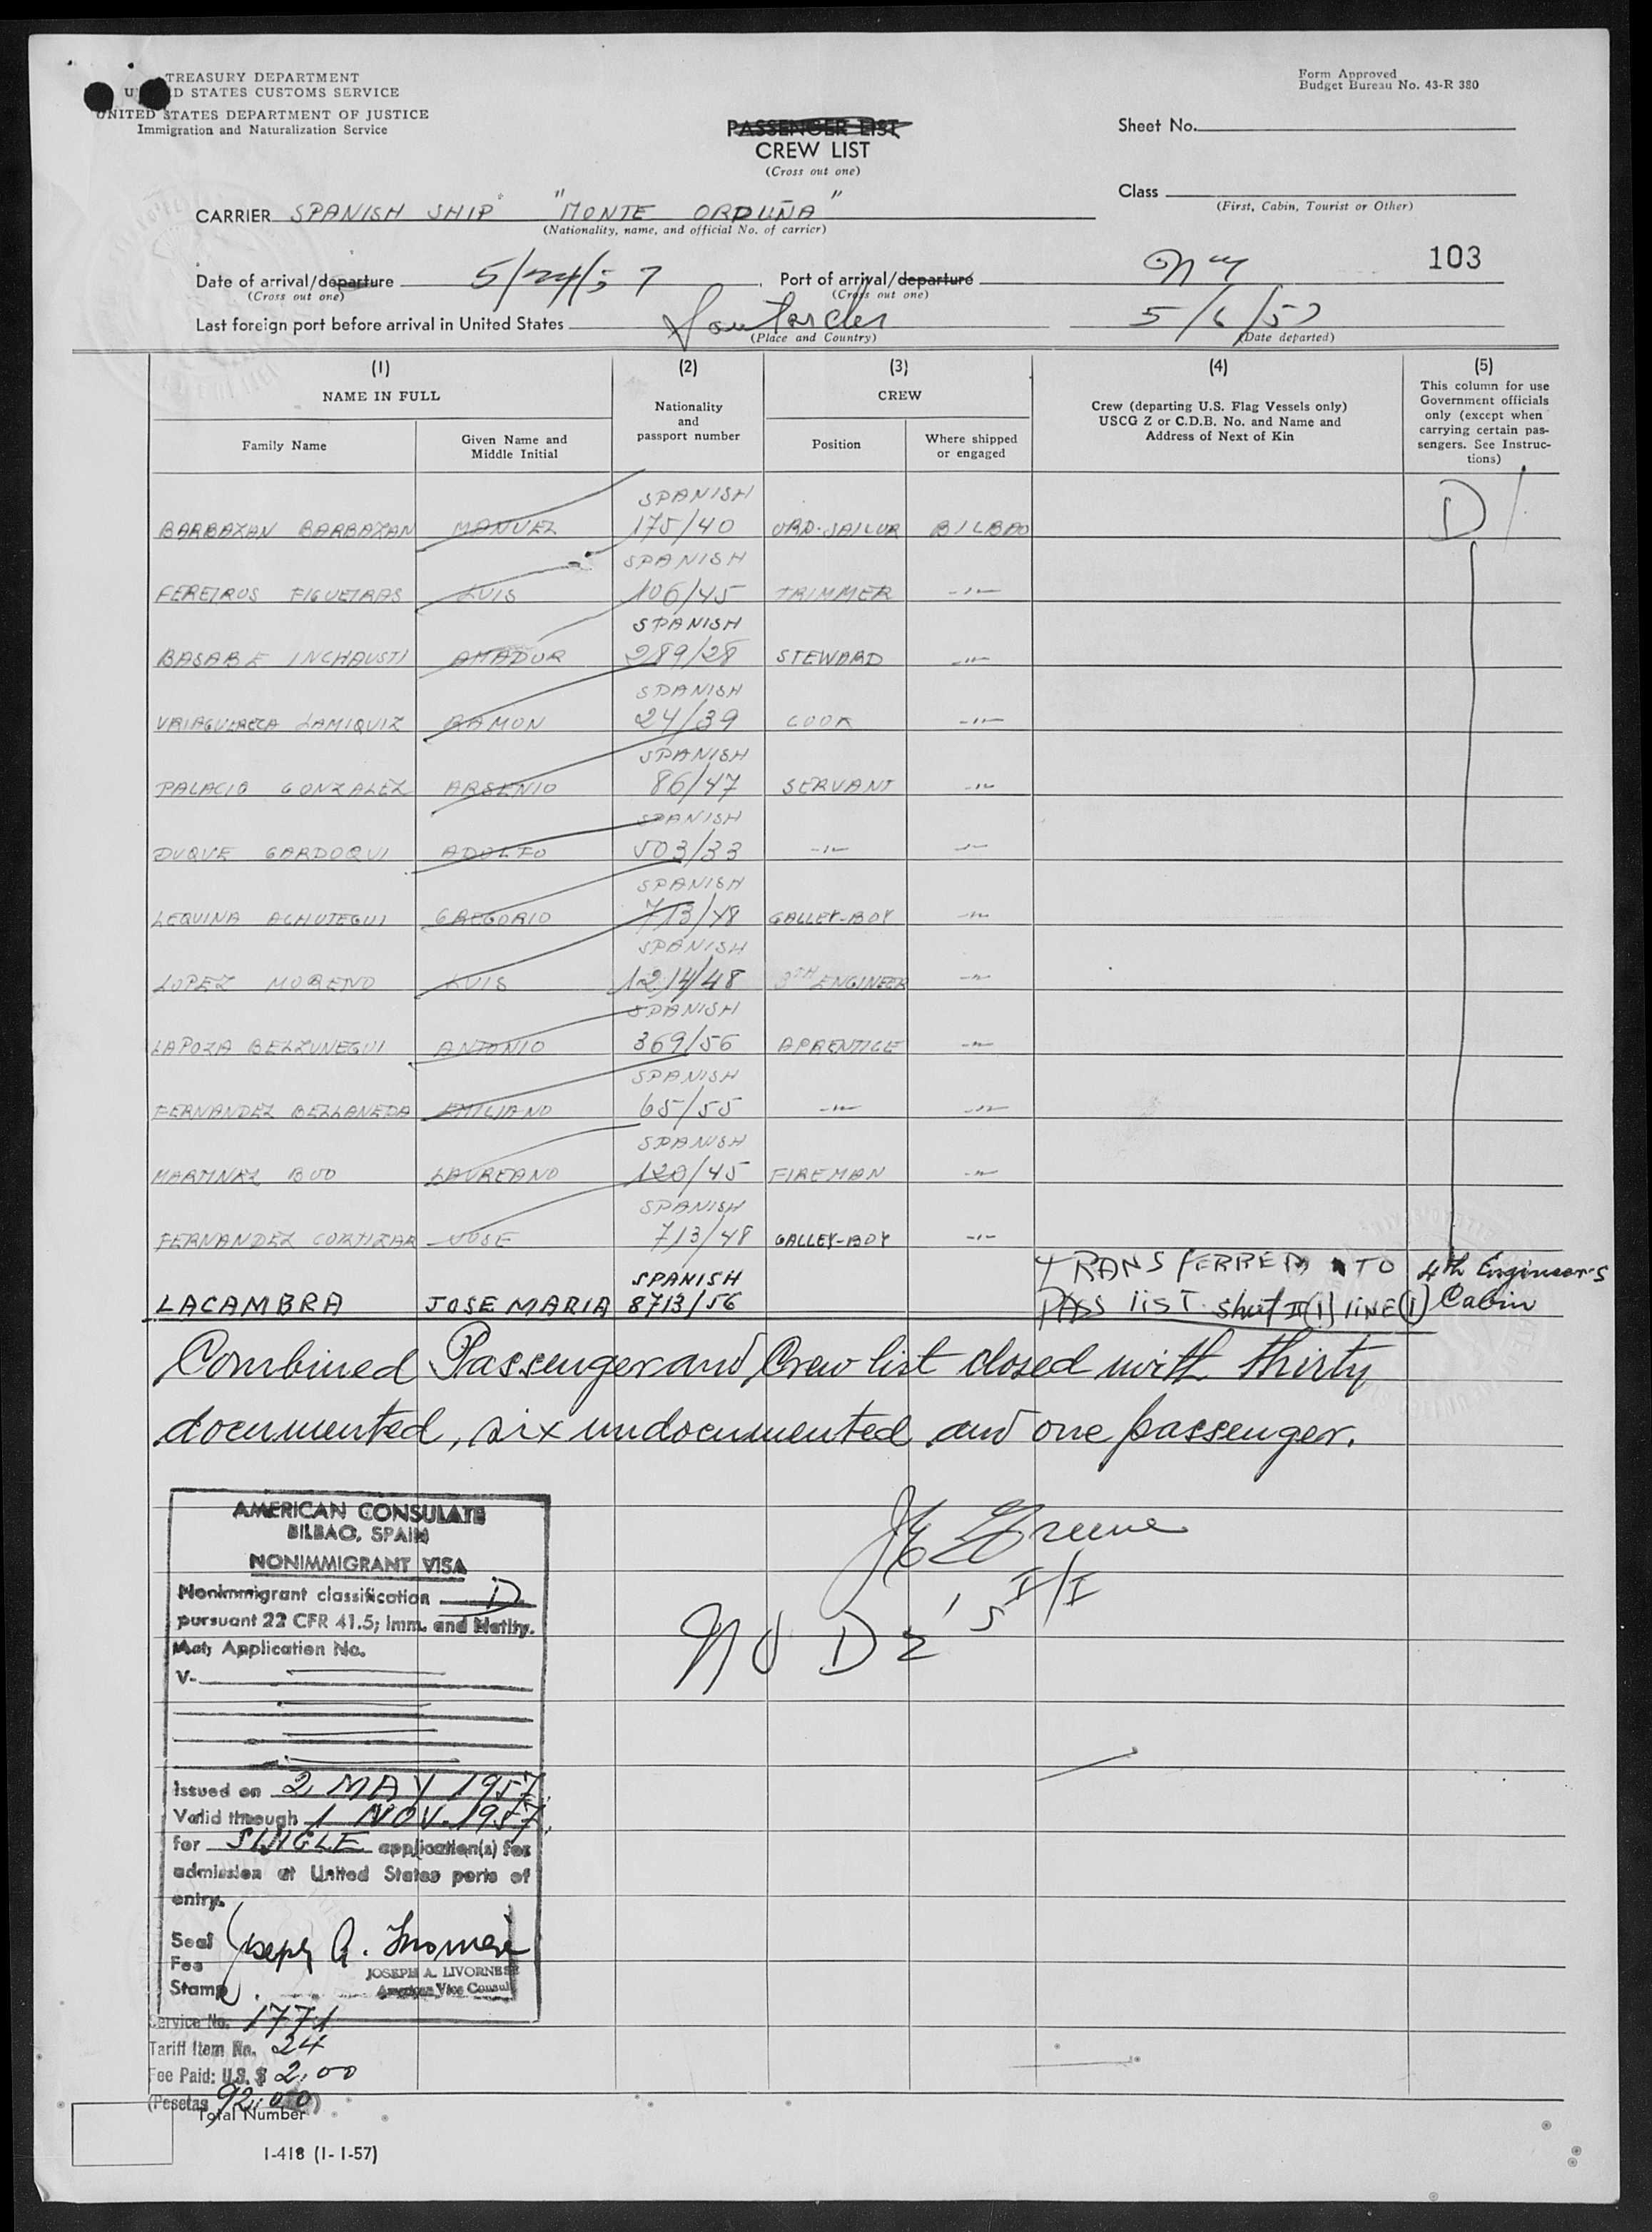 TREASURY DEPARTMENT
UNITED STATES CUSTOMS SERVICE
UNITED STATES DEPARTMENT OF JUSTICE
Immigration and Naturalization Service
Form Approved
Budget Bureau No. 43-R 380
PASSENGER LIST
CREW LIST
(Cross out one)
Sheet No.
Class
(First, Cabin, Tourist or Other)
CARRIER SPANISH SHIP "MONTE ORDUÑA"
(Nationality, name, and official No. of carrier)
103
Date of arrival/departure 5/24/57 Port of arrival/departure NY
(Cross out one) (Cross out one)
Last foreign port before arrival in United States Santander 5/6/57
(Place and Country) (Date departed)
(1) (2) (3) (4) (5)
NAME IN FULL Nationality and passport number CREW
Crew (departing U.S. Flag Vessels only) USCG Z or C.D.B. No. and Name and Address of Next of Kin
This column for use Government officials only (except when carrying certain passengers. See Instructions)
Family Name Given Name and Middle Initial Position Where shipped or engaged
SPANISH D
BARBAZAN BARBAZAN MANUEL 175/40 ORD. SAILOR BILBAO
SPANISH
FEREIROS FIGUEIRAS LUIS 106/45 TRIMMER -"-
SPANISH
BASABE INCHAUSTI AMADOR 289/28 STEWARD -"-
SPANISH
LAMIQUIZ RAMON 24/39 COOK -"-
SPANISH
PALACIO GONZALEZ ARSENIO 86/47 SERVANT -"-
SPANISH
DUQUE GARDOQUI ADOLFO 503/33 -"- -"-
SPANISH
LEQUINA ACHUTEGUI GREGORIO 713/48 GALLEY-BOY -"-
SPANISH
LOPEZ MORENO LUIS 1214/48 3TH ENGINEER -"-
SPANISH
LAPOZA BELZUNEGUI ANTONIO 369/56 APRENTICE -"-
SPANISH
FERNANDEZ BELLANEDA EMILIANO 65/55 -"- -"-
SPANISH
MARTINEZ BUO LAUREANO 120/45 FIREMAN -"-
SPANISH
FERNANDEZ CORTIZAR JOSE 713/48 GALLEY-BOY -"-
SPANISH TRANSFERRED TO 4th Engineer's
LACAMBRA JOSE MARIA 8713/56 PASS LIST sheet II(1) LINE(1) Cabin
Combined Passenger and Crew list closed with thirty
documented, six undocumented and one passenger.
AMERICAN CONSULATE
BILBAO, SPAIN
NONIMMIGRANT VISA
Nonimmigrant classification D
pursuant 22 CFR 41.5; Imm. and Natlty.
Act; Application No.
V-
Greene
I/I
NO D2's
Issued on 2 MAY 1957
Valid through 1 NOV. 1957
for SINGLE application(s) for
admission at United States ports of
entry.
Seal
Fee
Stamp
Joseph A. Livornese
JOSEPH A. LIVORNESE
American Vice Consul
Service No. 1771
Tariff Item No. 24
Fee Paid: U.S. $ 2.00
(Pesetas 92.00)
Total Number
I-418 (1-1-57)